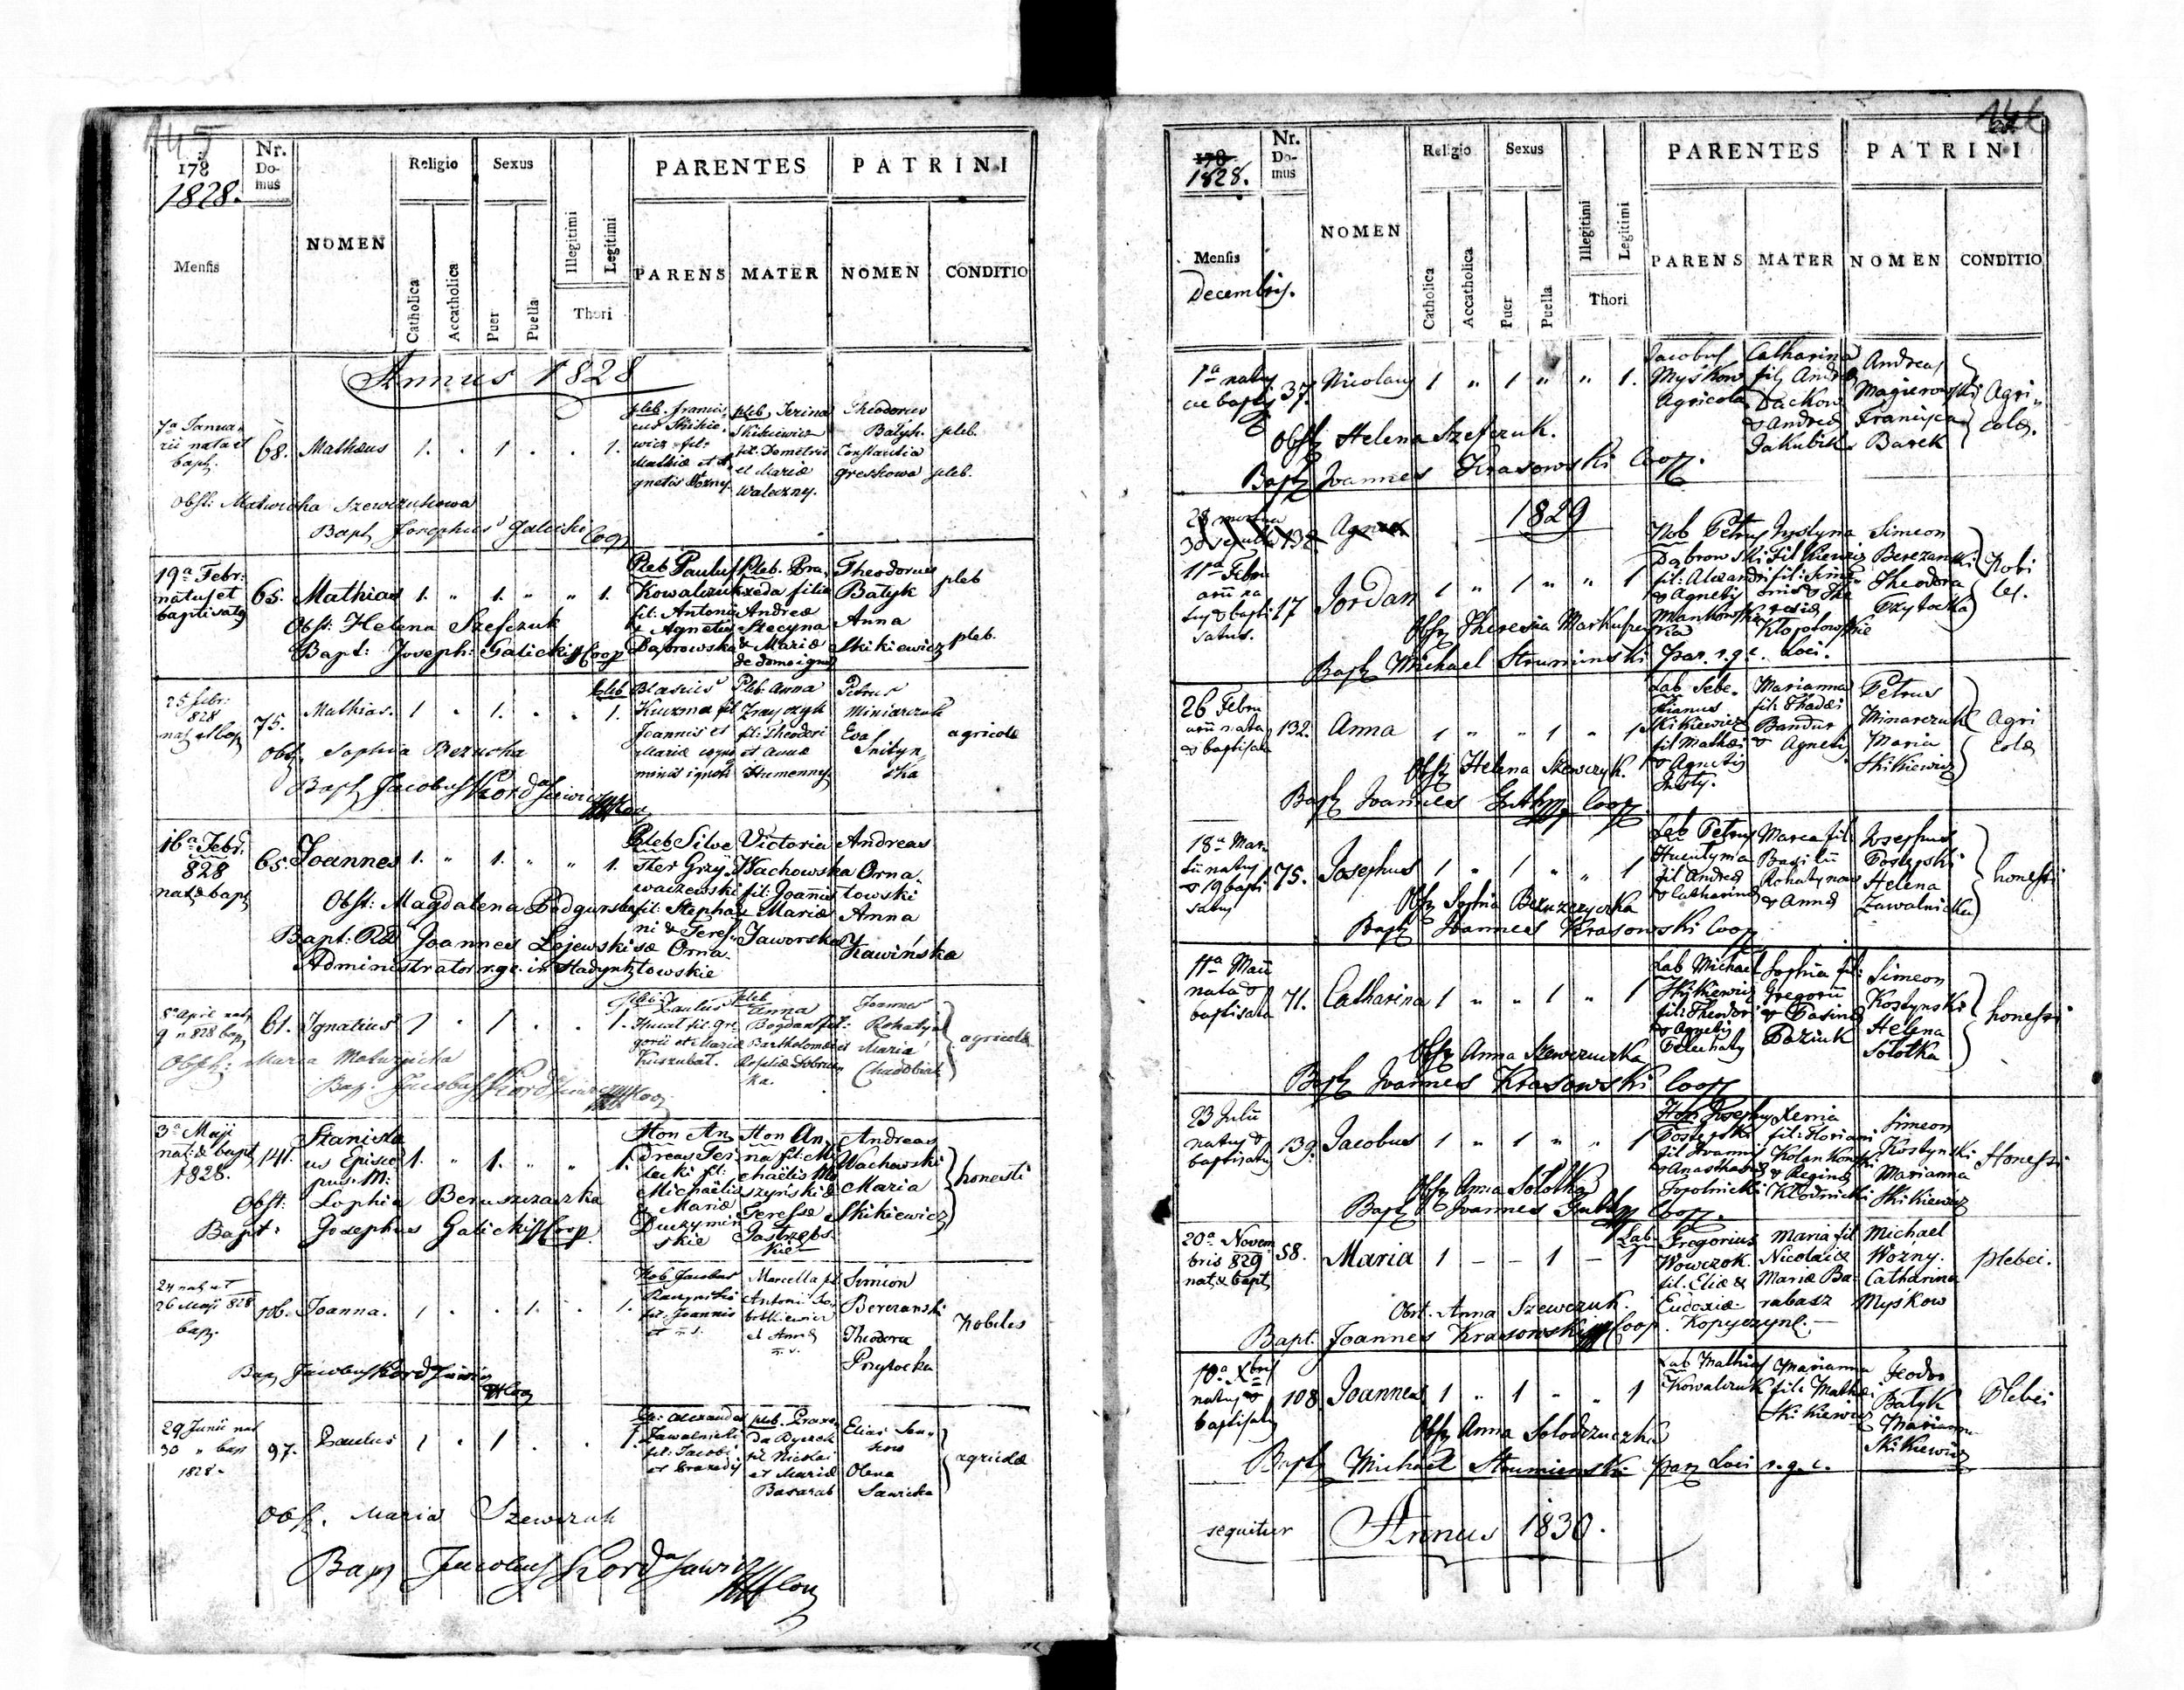 145
178
1828.
Nr.
Do-
mus
NOMEN
Religio
Sexus
PARENTES
PATRINI
Mensis
Catholica
Accatholica
Puer
Puella
Illegitimi
Legitimi
Thori
PARENS
MATER
NOMEN
CONDITIO
Annus 1828
7a Janua-
rii nata et
bapt:
68.
Mathaeus
1. . 1 . . 1.
pleb. Francis-
cus Skikie-
wicz fil.
Mathiae et A-
gnetis Wozny.
pleb. Irina
Skikiewicz
fil. Demetrii
et Mariae
Waleczny.
Theodorus
Batyk.
Constantia
Greskowa
pleb.
pleb.
Obst: Matwicha Szewczukowa
Bapt Josephus Galicki Coop
19a Febr:
natus et
baptisatus
65.
Mathias
1. " 1. " " 1.
Pleb Paulus
Kowalczuk
fil: Antonii
& Agnetis
Dabrowska
Pleb. Pra-
xeda filia
Andreae
Stecyna
& Mariae
de domo ignot
Theodorus
Batyk
Anna
Skikiewicz
pleb
pleb.
Obst: Helena Szefczuk
Bapt: Joseph: Galicki Coop
25 febr:
828
nat et bap
75.
Mathias.
1 . 1. . . 1.
pleb Blasius
Kuzma fil
Joannis et
Mariae cogno
minis ignoti
Pleb: Anna
Zrayczyk
fil: Theodori
et Annae
Humenny
Petrus
Miniarczuk
Eva
Snityn
ska
agricolae
Obst Sophia Bezucha
Bapt Jacobus Kordasiewicz Coop
16a Febr:
828
nat & bapt
65.
Joannes
1. " 1. " " 1.
Pleb Silve
ster Grzy
waczewski
fil: Stepha
ni & Teres
ae Orna-
towskie
Victoria
Wachowska
fil: Joannis
& Mariae
Jaworska
Andreas
Orna-
towski
Anna
Kawińska
Obst: Magdalena Podgurska
Bapt: Rd Joannes Lojewski
Administrator r.g.c. in Hadynk
8a April nat
9 " 828 bap
61.
Ignatius
1 . 1 . . 1.
pleb
Paulus
Hucat fil. Gre
gorii et Mariae
Kuszubat.
pleb
Anna
Bogdan fil:
Bartholomaei
Rosaliae Dobrian
ska.
Joannes
Rohatyn
Maria
Chudobiak
agricolae
Obst: Maria Matwijicha
Bap. Jacobus Kordasiewicz Coop
3a Maji
nat: & bapt
1828.
141.
Stanisla
us Episco
pus M:
1. " 1. " " 1.
Hon An
dreas Ter
lecki fil:
Michaëlis
& Mariae
Duczymin
skie
Hon An
na fil: Mi
chaëlis Mo
szynski &
Teresae
Jastrzebs
kie
Andreas
Wachowski
Maria
Skikiewicz
honesti
Obst: Sophia Beruszczaszka
Bapt: Josephus Galicki Coop.
24 nat et
26 Maji 828
bap.
Joanna.
1 . . 1. . 1.
Nob Jacobus
fil. Joannis
Marcella fil
Antoni
et Annae
Simion
Berezanski
Theodora
Przytocka
Nobiles
Bap Jacobus Kordasiewicz Coop
29 Junii nat
30 " bap
1828.
97.
Paulus
1 . 1 . . 1.
Alexander
Zawalnicki
fil. Jacobi
et Praxedis
pleb. Praxe
da Dyczek
fil Nicolai
et Mariae
Basarab
Elias Sen-
kow
Olena
Sawicka
agricolae
Obst. Maria Szewczuk
Bap Jacobus Kordasiewicz Coop
146
178
1828.
Nr.
Do-
mus
NOMEN
Religio
Sexus
PARENTES
PATRINI
Mensis
Decembris.
Catholica
Accatholica
Puer
Puella
Illegitimi
Legitimi
Thori
PARENS
MATER
NOMEN
CONDITIO
1a natus
ac bapts
37.
Nicolaus
1 " 1 " " 1.
Jacobus
Myskow
Agricola
Catharina
fil Andreae
Dackow
& Andreae
Jakubik
Andreas
Magierowski
Francisca
Barek
Agri-
colae.
Obst Helena Szefczuk.
Bapt Joannes Krasowski Coop.
28 mortua
30 sepulta
132
Agnes
1829
11a Febru
arii na
tus & bapti
satus.
17
Jordan
1 " 1 " " 1
Nob Petrus
Dąbrowski
fil: Alexandri
& Agnetis
Mankowska
Justyna
fil Xiewiz
fil: Simeo
nis & The
resiae
Kłopotowskie
Simeon
Berezanski
Theodora
Przytocka
Nobi
les.
Obst Theresia Markuszewska
Bapt Michael Struminski Par. r.g.c. Loci.
26 Febru
arii nata
& baptisata
132.
Anna
1 " " 1 " 1
Lab Seba-
stianus
Skikiewicz
fil Mathaei
& Agnetis
Marianna
fil: Thadaei
Bandur
& Agnetis
Petrus
Minarczuk
Maria
Skikiewicz
Agri
colae
Obst Helena Szewczyk.
Bapt Joannes Coop
18a Mar
tii natus
& 19 bapti
satus
75.
Josephus
1 " 1 " " 1
Lab Petrus
Hucutynia
fil Andreae
& Catharinae
Maria fil:
Basilii
Rohatynow
& Annae
Josephus
Postępski
Helena
Zawalnicka
honesti
Obst Sophia Bezuszczycka
Bapt Joannes Krasowski Coop
11a Maii
nata &
baptisata
71.
Catharina
1 " " 1 " 1
Lab Michael
Skikiewicz
fil: Theodori
& Agnetis
Pelechaty
Sophia fil:
Gregorii
& Parin
Paziuk
Simeon
Kostynski
Helena
Solotka
honesti
Obst Anna Szewczuczka
Bapt Joannes Krasowski Coop
23 Julii
natus &
baptisatus
139.
Jacobus
1 " 1 " " 1
Hon Josephus
Postępski
fil Joannis
& Anasthasiae
Topolnicki
Xenia
fil: Floriani
Kolankowski
& Reginae
Kłodnicki
Simeon
Kostynski
Marianna
Skikiewicz
Honesti
Obst Anna Solotka
Bapt Joannes Coop.
20a Novem
bris 829
nat, & bapt,
58.
Maria
1 – – 1 – 1
Lab.
Gregorius
Wowczok.
fil. Eliae &
Eudoxiae
Kopyczyn
Maria fil
Nicolai &
Mariae Ba-
rabasz
Michael
Wozny.
Catharina
Myśkow
plebei.
Obst. Anna Szewczuk.
Bapt. Joannes Krasowski Coop.
10a Xbris
natus &
baptisatus
108
Joannes
1 " 1 " " 1
Lab Mathias
Kowalczuk
Marianna
fil: Mathaei
Skikiewicz
Feodor
Batyk
Marianna
Skikiewicz
Plebei
Obst Anna Solodczuczka
Bapt Michael Struminski par Loci r.g.c.
sequitur Annus 1830.